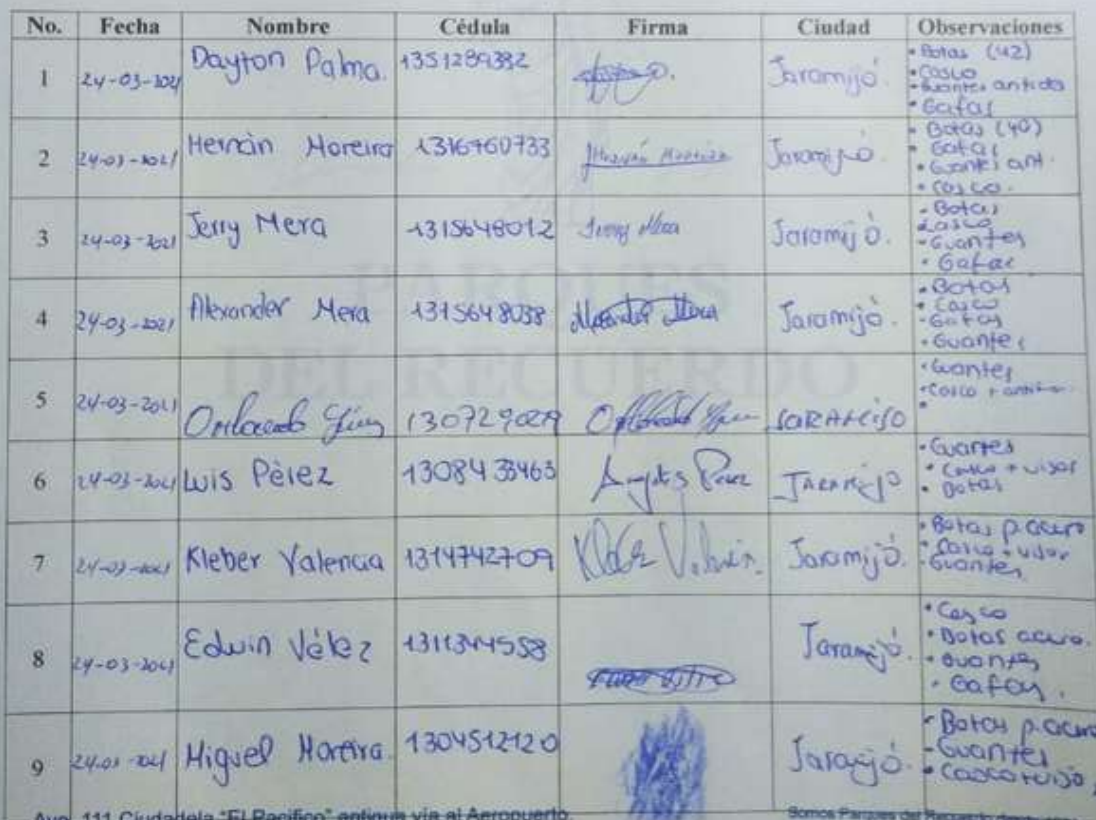 No. Fecha Nombre Cédula Firma Ciudad Observaciones
1 24-03-2021 Dayton Palma. 1351289382 Jaramijó. • Botas (42)
• Casco
• Guantes antide
• Gafas
2 24-03-2021 Hernán Moreira 1316760733 Hernán Moreira Jaramijó. • Botas (40)
• Gafas
• Guantes ant.
• Casco.
3 24-03-2021 Jerry Mera 1315648012 Jerry Mera Jaramijó. • Botas
Casco
• Guantes
• Gafas
4 24-03-2021 Alexander Mera 1315648038 Alexander Mera Jaramijó. • Botas
• Casco
• Gafas
• Guantes
5 24-03-2021 Orlando JARAMIJO • Guantes
• Casco +
•
6 24-03-2021 Luis Pérez 1308433463 JARAMIJO • Guantes
• Casco + visor
• Botas
7 24-03-2021 Kleber Valencia 1314742709 Jaramijó. • Botas p. acero
• Casco + visor
• Guantes
8 24-03-2021 Edwin Vélez 1311344558 Jaramijó. • Casco
• Botas acero.
• Guantes
• Gafas.
9 24-03-2021 Miguel Moreira. 1304512120 Jaramijó. • Botas p. acero
• Guantes
• Casco + viso
PARQUES
DEL RECUERDO
Ave. 111 Ciudadela "El Pacifico" antigua vía al Aeropuerto Somos Parques del Recuerdo